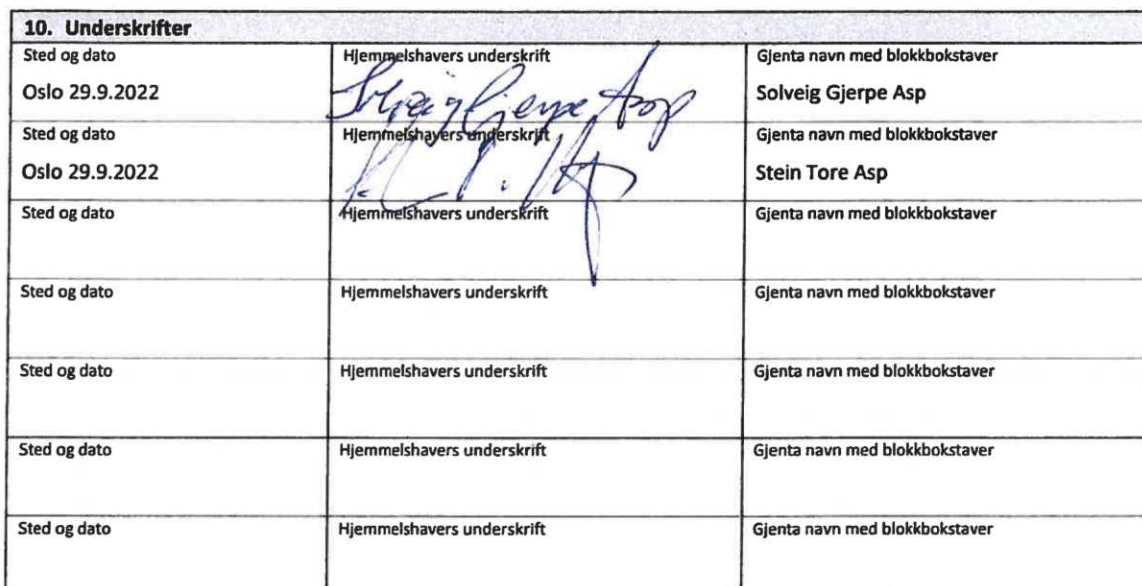 10. Underskrifter
Sted og dato Hjemmelshavers underskrift Gjenta navn med blokkbokstaver
Oslo 29.9.2022 Solveig Gjerpe Asp Solveig Gjerpe Asp
Sted og dato Hjemmelshavers underskrift Gjenta navn med blokkbokstaver
Oslo 29.9.2022 Stein Tore Asp
Sted og dato Hjemmelshavers underskrift Gjenta navn med blokkbokstaver
Sted og dato Hjemmelshavers underskrift Gjenta navn med blokkbokstaver
Sted og dato Hjemmelshavers underskrift Gjenta navn med blokkbokstaver
Sted og dato Hjemmelshavers underskrift Gjenta navn med blokkbokstaver
Sted og dato Hjemmelshavers underskrift Gjenta navn med blokkbokstaver